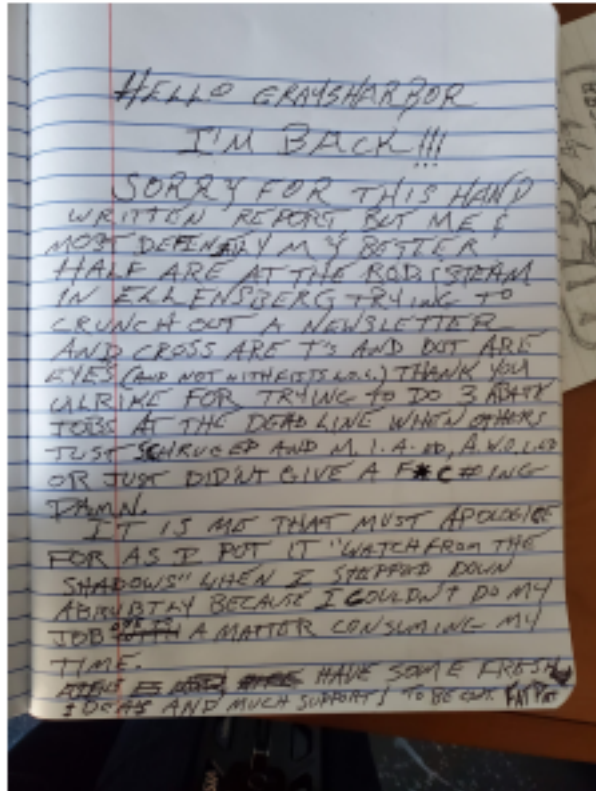 HELLO GRAYSHARBOR
I'M BACK!!!
SORRY FOR THIS HAND
WRITTEN REPORT BUT ME &
MOST DEFENATLY MY BETTER
HALF ARE AT THE ROD & STEAM
IN ELLENSBERG TRYING TO
CRUNCH OUT A NEWSLETTER
AND CROSS ARE T'S AND DOT ARE
EYES (AND NOT WITH FISTS L.O.L.) THANK YOU
ULRIKE FOR TRYING TO DO 3 ABATE
JOBS AT THE DEADLINE WHEN OTHERS
JUST SCHRUGED AND M.I.A.-ED, A.W.O.L.ED
OR JUST DIDN'T GIVE A F*C#ING
DAMN.
IT IS ME THAT MUST APOLOGIZE
FOR AS I PUT IT "WATCH FROM THE
SHADOWS" WHEN I STEPPED DOWN
ABRUBTLY BECAUSE I COULDN'T DO MY
JOB DUE TO A MATTER CONSUMING MY
TIME.
HAVE SOME FRESH
IDEAS AND MUCH SUPPORT! TO BE CONT. FAT PAT